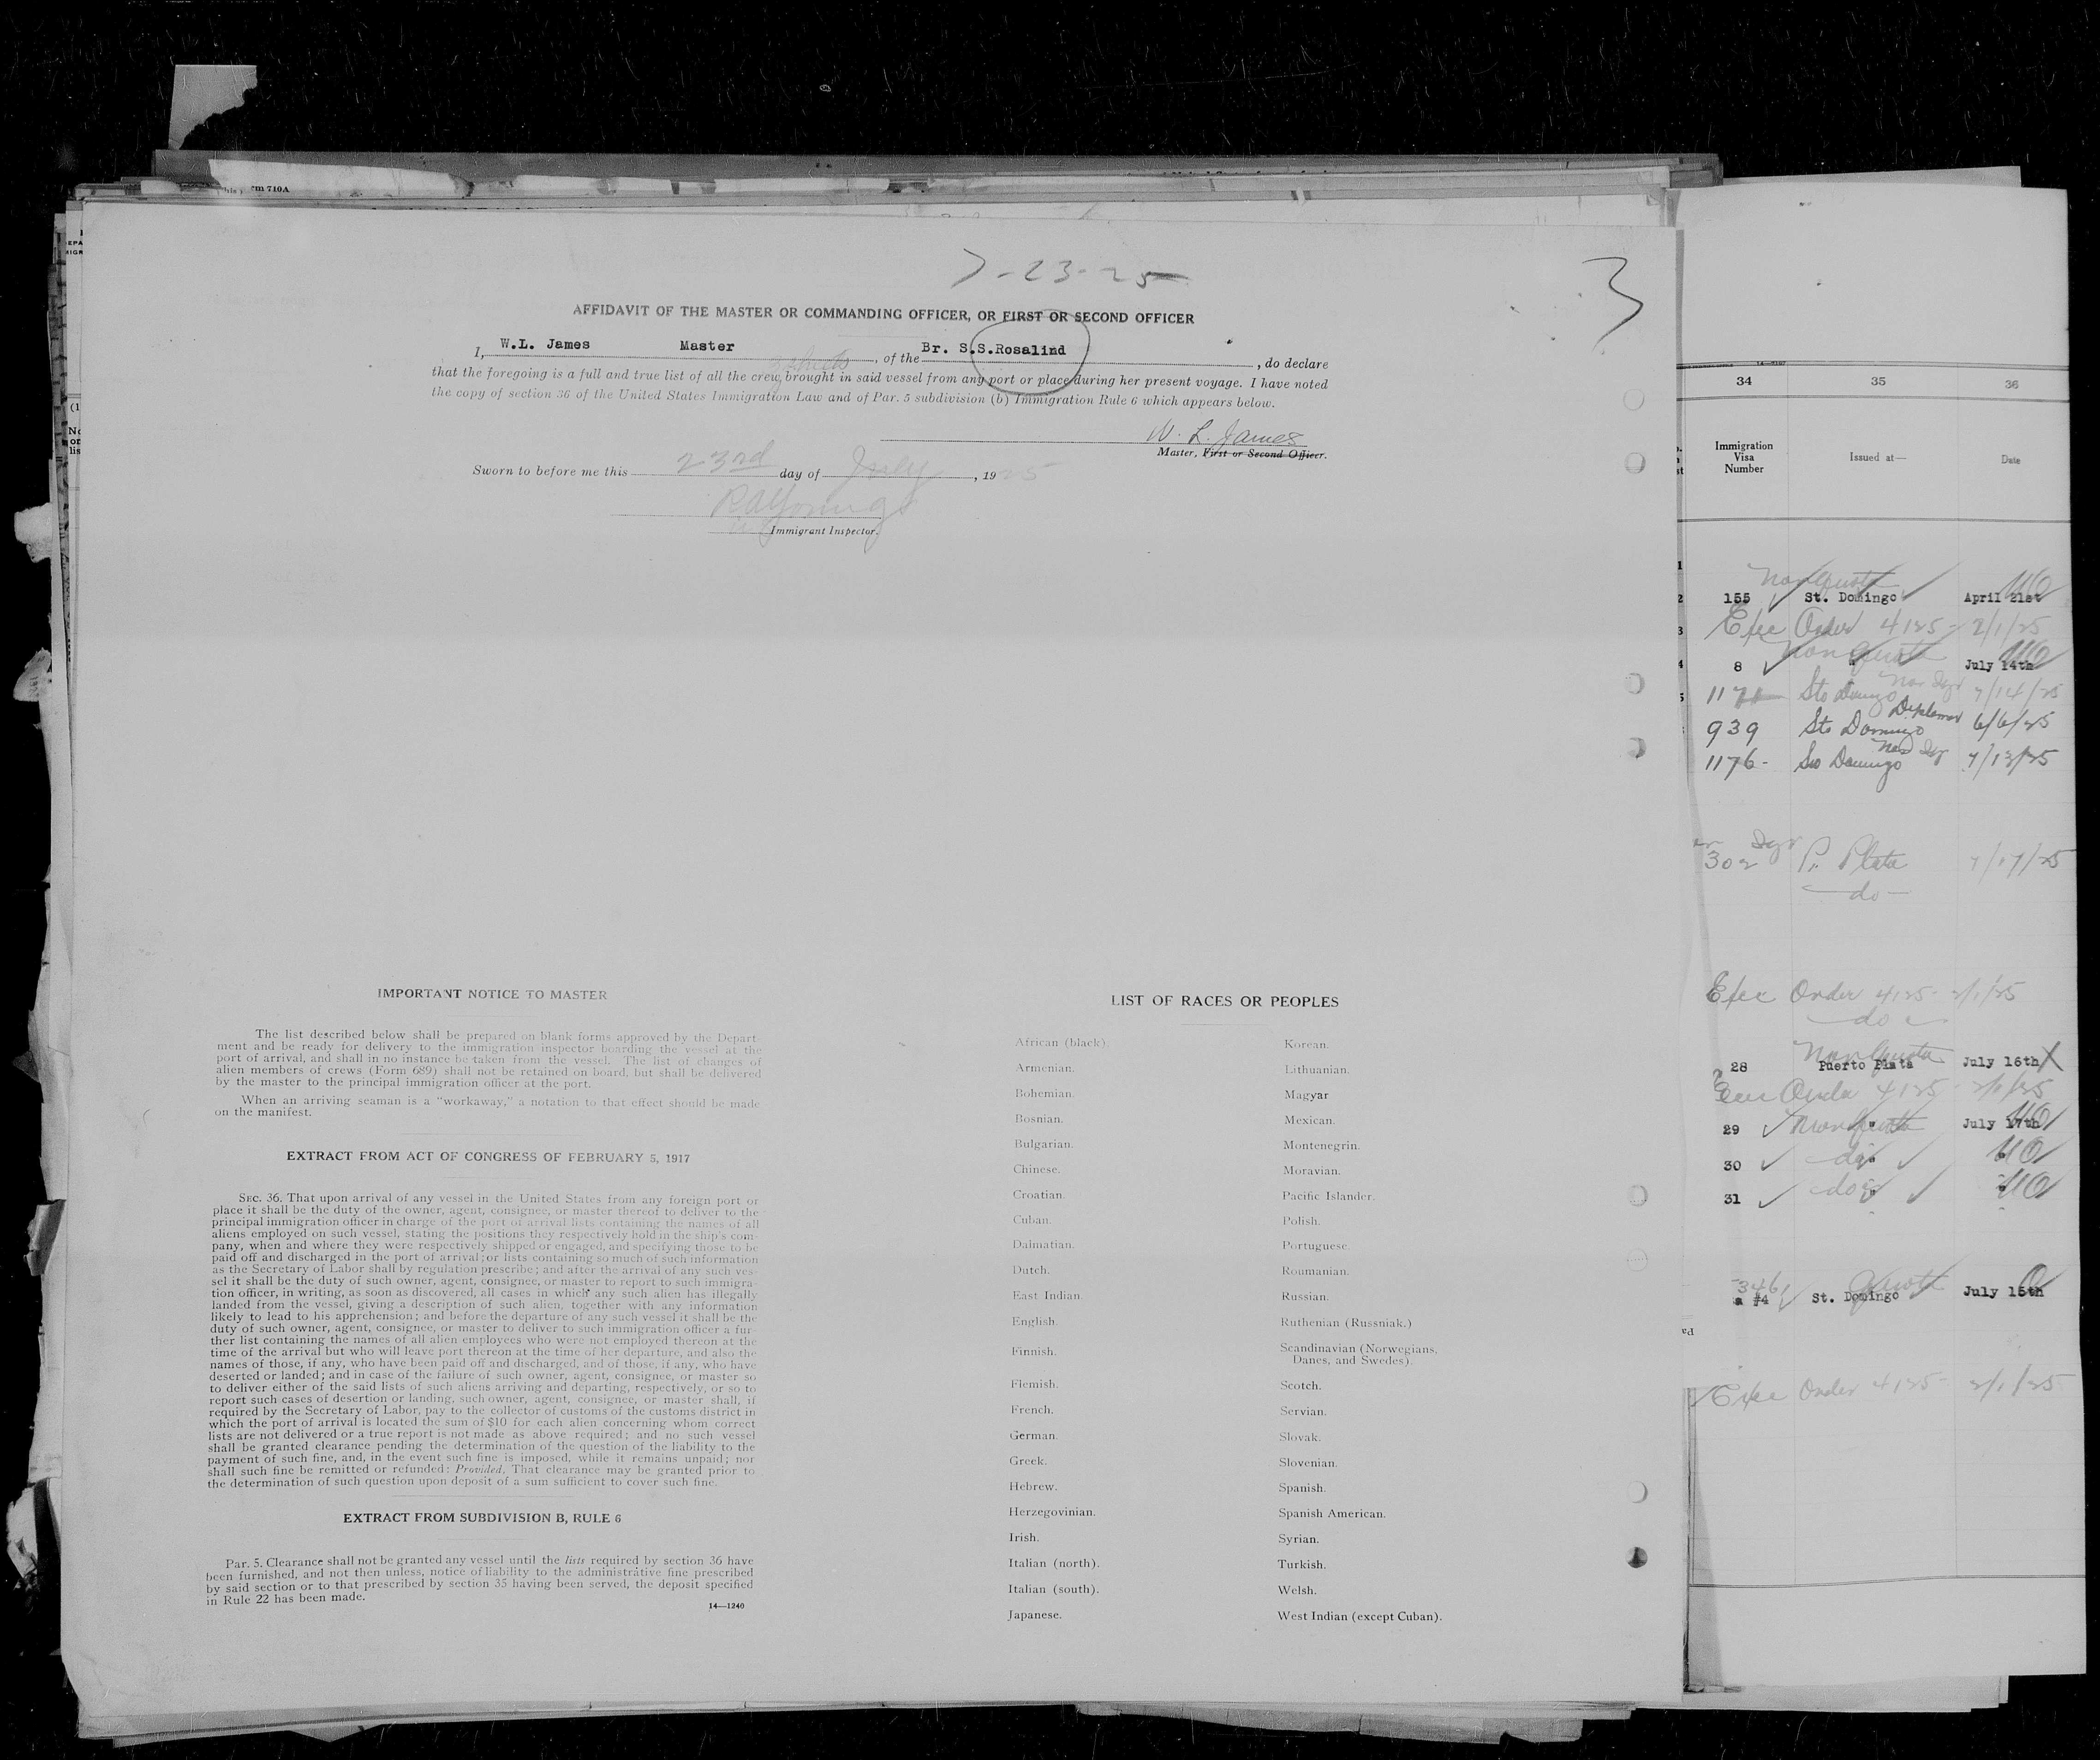 rm 710A
7-23-25
3
AFFIDAVIT OF THE MASTER OR COMMANDING OFFICER, OR FIRST OR SECOND OFFICER
I, W.L. James Master, of the Br. S.S.Rosalind, do declare
3 sheets
that the foregoing is a full and true list of all the crew brought in said vessel from any port or place during her present voyage. I have noted
the copy of section 36 of the United States Immigration Law and of Par. 5 subdivision (b) Immigration Rule 6 which appears below.
W. L. James
Master, First or Second Officer.
Sworn to before me this 23rd day of July, 1925
Immigrant Inspector.
IMPORTANT NOTICE TO MASTER
The list described below shall be prepared on blank forms approved by the Depart-
ment and be ready for delivery to the immigration inspector boarding the vessel at the
port of arrival, and shall in no instance be taken from the vessel. The list of changes of
alien members of crews (Form 689) shall not be retained on board, but shall be delivered
by the master to the principal immigration officer at the port.
When an arriving seaman is a "workaway," a notation to that effect should be made
on the manifest.
EXTRACT FROM ACT OF CONGRESS OF FEBRUARY 5, 1917
SEC. 36. That upon arrival of any vessel in the United States from any foreign port or
place it shall be the duty of the owner, agent, consignee, or master thereof to deliver to the
principal immigration officer in charge of the port of arrival lists containing the names of all
aliens employed on such vessel, stating the positions they respectively hold in the ship's com-
pany, when and where they were respectively shipped or engaged, and specifying those to be
paid off and discharged in the port of arrival; or lists containing so much of such information
as the Secretary of Labor shall by regulation prescribe; and after the arrival of any such ves-
sel it shall be the duty of such owner, agent, consignee, or master to report to such immigra-
tion officer, in writing, as soon as discovered, all cases in which any such alien has illegally
landed from the vessel, giving a description of such alien, together with any information
likely to lead to his apprehension; and before the departure of any such vessel it shall be the
duty of such owner, agent, consignee, or master to deliver to such immigration officer a fur-
ther list containing the names of all alien employees who were not employed thereon at the
time of the arrival but who will leave port thereon at the time of her departure, and also the
names of those, if any, who have been paid off and discharged, and of those, if any, who have
deserted or landed; and in case of the failure of such owner, agent, consignee, or master so
to deliver either of the said lists of such aliens arriving and departing, respectively, or so to
report such cases of desertion or landing, such owner, agent, consignee, or master shall, if
required by the Secretary of Labor, pay to the collector of customs of the customs district in
which the port of arrival is located the sum of $10 for each alien concerning whom correct
lists are not delivered or a true report is not made as above required; and no such vessel
shall be granted clearance pending the determination of the question of the liability to the
payment of such fine, and, in the event such fine is imposed, while it remains unpaid; nor
shall such fine be remitted or refunded: Provided, That clearance may be granted prior to
the determination of such question upon deposit of a sum sufficient to cover such fine.
EXTRACT FROM SUBDIVISION B, RULE 6
Par. 5. Clearance shall not be granted any vessel until the lists required by section 36 have
been furnished, and not then unless, notice of liability to the administrative fine prescribed
by said section or to that prescribed by section 35 having been served, the deposit specified
in Rule 22 has been made.
14—1240
LIST OF RACES OR PEOPLES
African (black).
Armenian.
Bohemian.
Bosnian.
Bulgarian.
Chinese.
Croatian.
Cuban.
Dalmatian.
Dutch.
East Indian.
English.
Finnish.
Flemish.
French.
German.
Greek.
Hebrew.
Herzegovinian.
Irish.
Italian (north).
Italian (south).
Japanese.
Korean.
Lithuanian.
Magyar
Mexican.
Montenegrin.
Moravian.
Pacific Islander.
Polish.
Portuguese.
Roumanian.
Russian.
Ruthenian (Russniak.)
Scandinavian (Norwegians,
Danes, and Swedes).
Scotch.
Servian.
Slovak.
Slovenian.
Spanish.
Spanish American.
Syrian.
Turkish.
Welsh.
West Indian (except Cuban).
34 35 36
Immigration
Visa
Number
Issued at—
Date
Non Quota
155 St. Domingo April 21st
Exec Order 4125- 2/1/25
Non Quota
8 " July 14th
1171 Sto Domingo 7/14/25
939 Sto Domingo Diplomat 6/6/25
1176- Sto Domingo 7/13/25
302 P. Plata 7/17/25
do
Exec Order 4125- 2/1/25
do
Non Quota
28 Puerto Plata July 16th X
Exec Order 4125- 2/1/25
29 Non Quota July 17th
30 do
31 do
346
#4 St. Domingo Quota July 15th
Exec Order 4125- 2/1/25